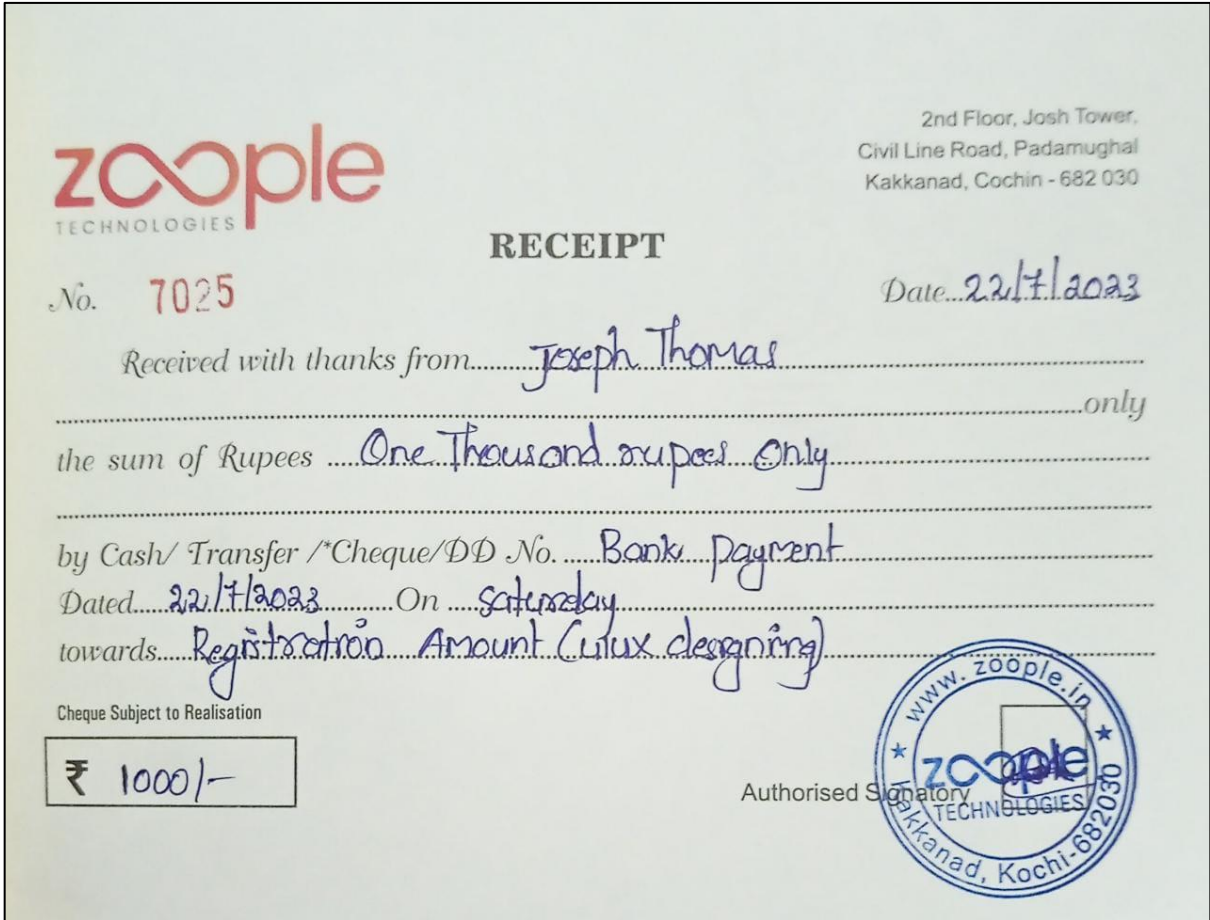 zoople
TECHNOLOGIES
2nd Floor, Josh Tower,
Civil Line Road, Padamughal
Kakkanad, Cochin - 682 030
RECEIPT
No. 7025
Date...22/7/2023
Received with thanks from.....Joseph Thomas
only
the sum of Rupees ....One Thousand rupees Only
by Cash/ Transfer /*Cheque/DD No. ....Bank Payment
Dated....22/7/2023....On ....Saturday
towards....Registration Amount (ui ux designing)
Cheque Subject to Realisation
₹ 1000/-
Authorised Signatory
www.zoople.in
zoople
TECHNOLOGIES
Kakkanad, Kochi-682030